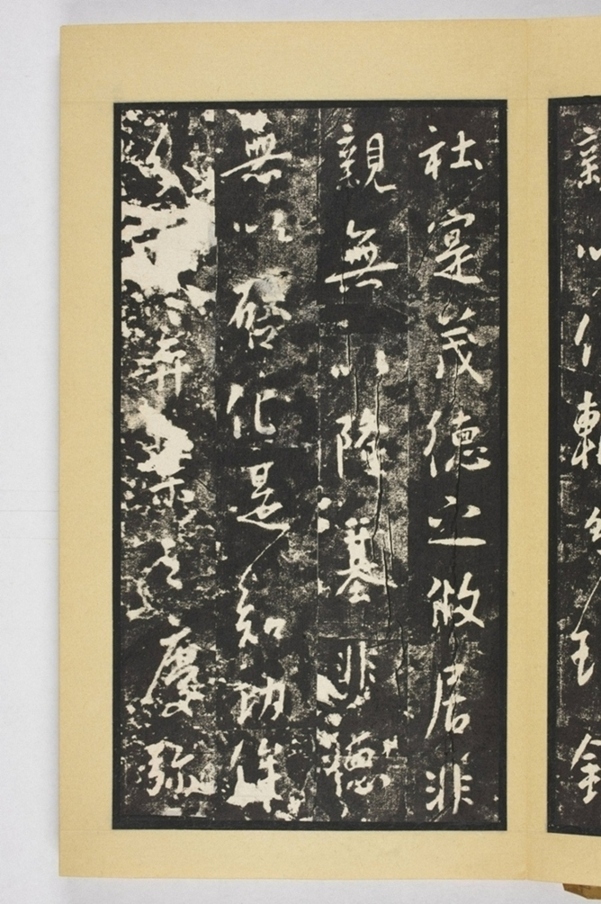 社寔茂德之攸居非
親無以隆基非德
無以啓化是知功侔
分弈葉之慶弥